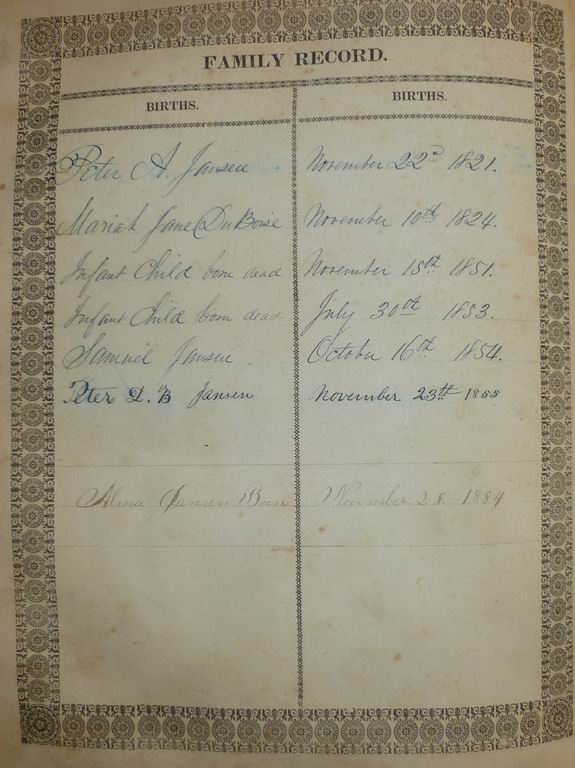 FAMILY RECORD.
BIRTHS. BIRTHS.
Peter A. Jansen November 22d 1821.
Mariah Jane DuBoise November 10th 1824.
Infant Child born dead November 15th 1851.
Infant Child born dead July 30th 1853.
Samuel Jansen October 16th 1854.
Peter D. B Jansen November 23th 1855
Alma Jansen Born November 28 1884